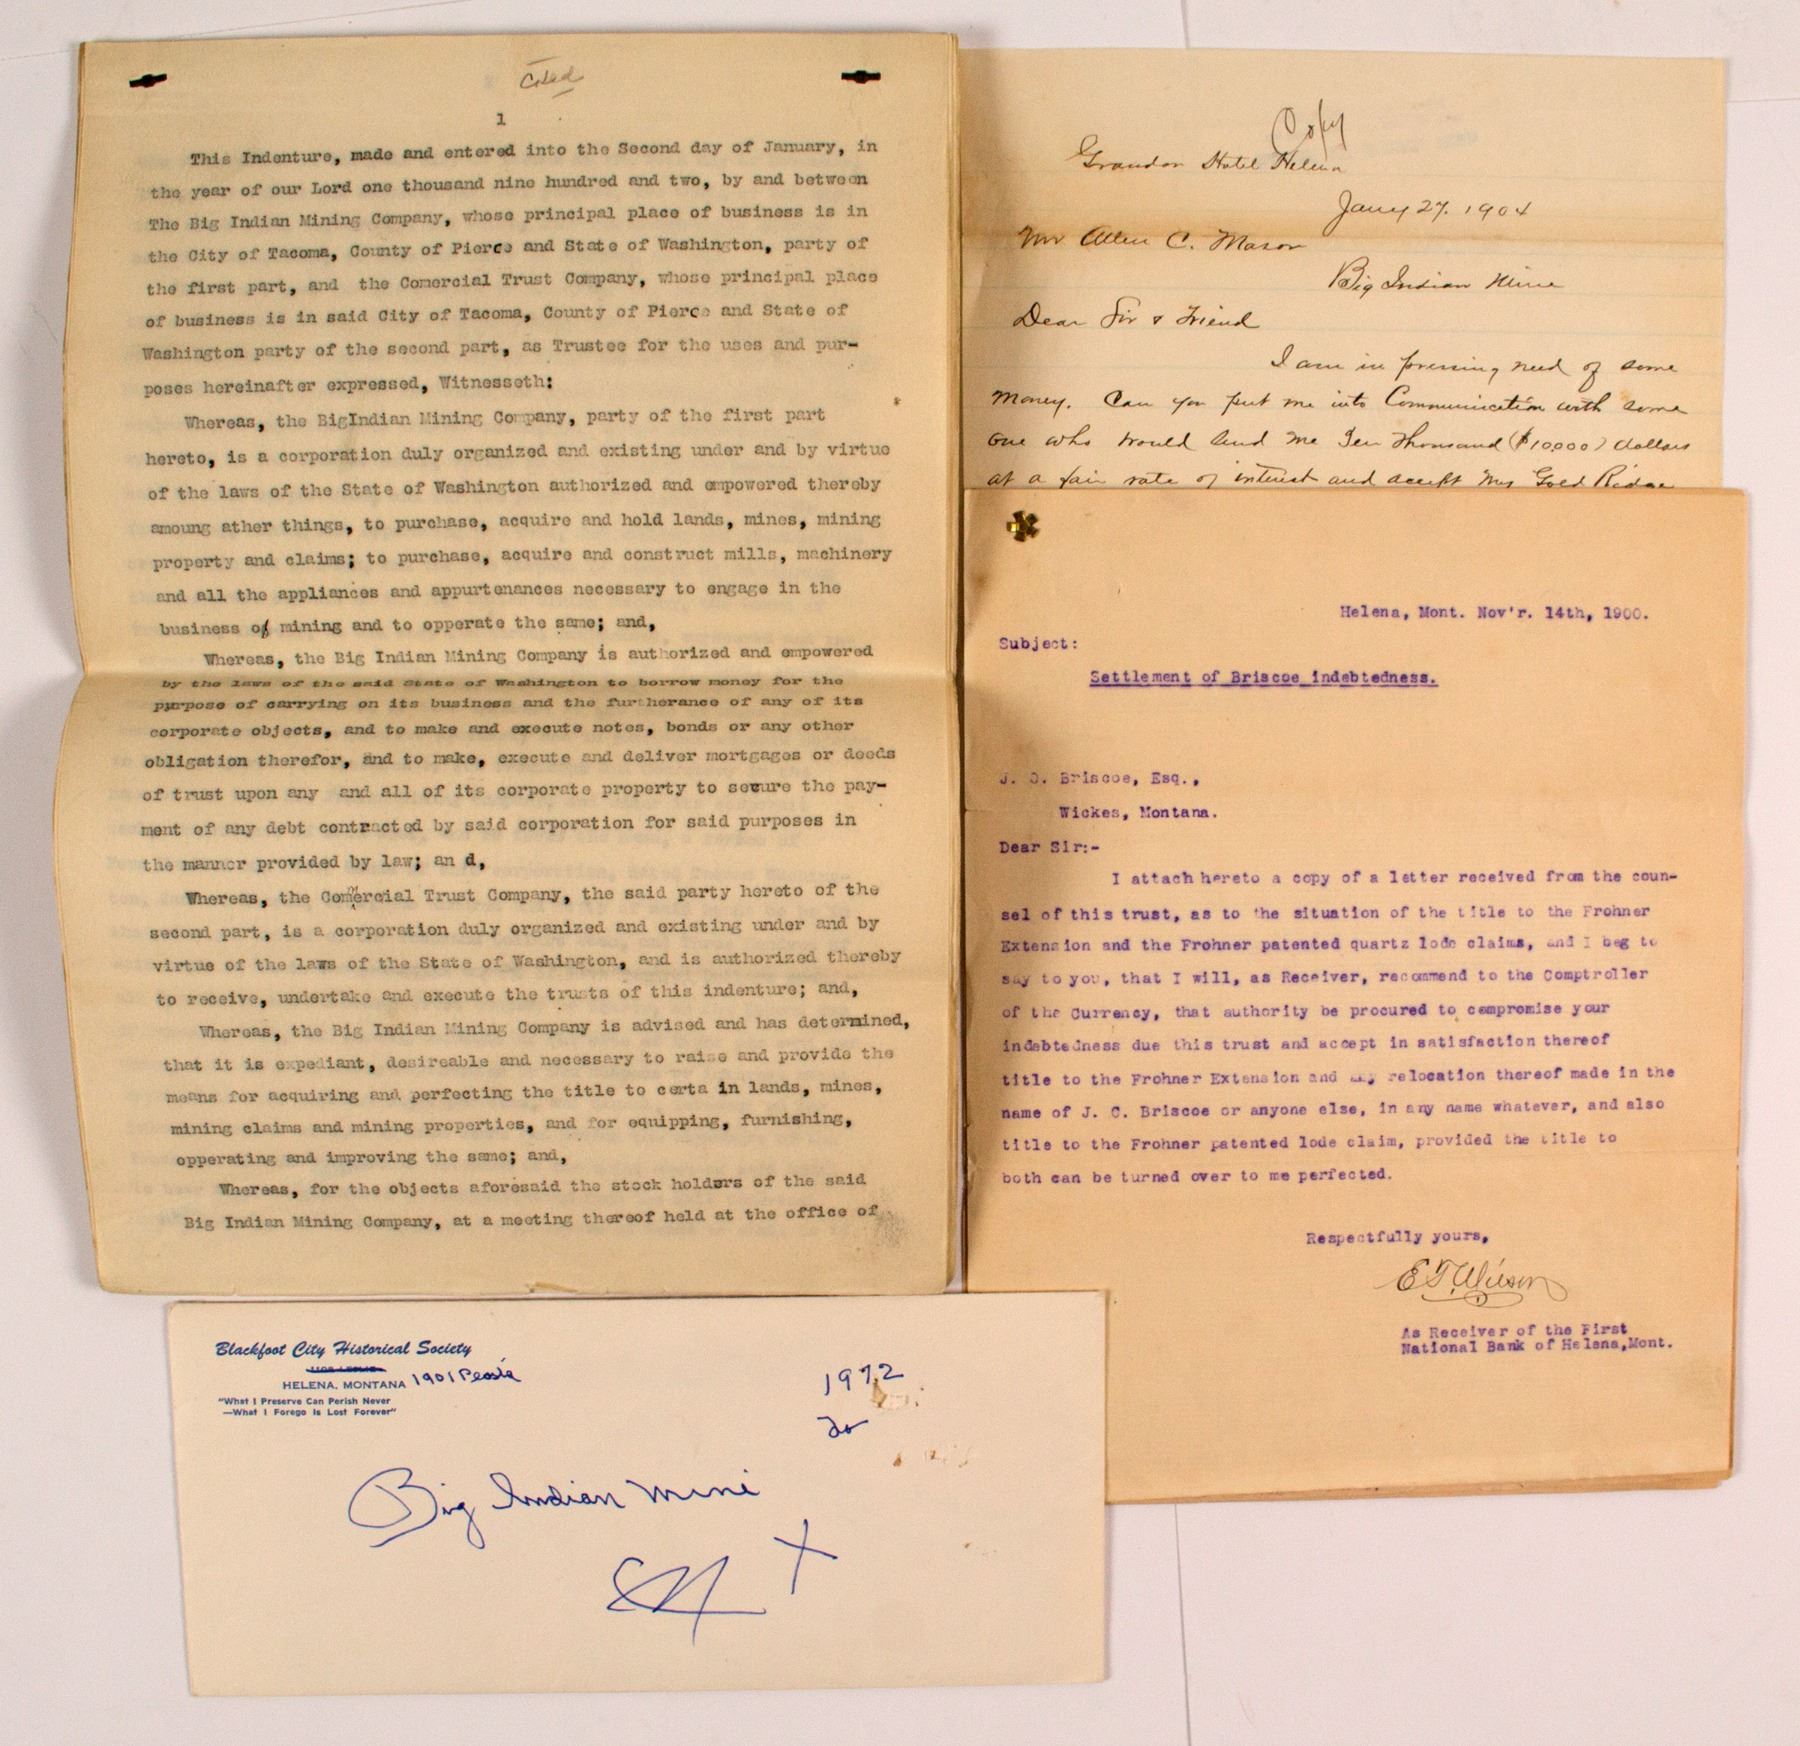 1
This Indenture, made and entered into the Second day of January, in
the year of our Lord one thousand nine hundred and two, by and between
The Big Indian Mining Company, whose principal place of business is in
the City of Tacoma, County of Pierce and State of Washington, party of
the first part, and the Comercial Trust Company, whose principal place
of business is in said City of Tacoma, County of Pierce and State of
Washington party of the second part, as Trustee for the uses and pur-
poses hereinafter expressed, Witnesseth:
Whereas, the BigIndian Mining Company, party of the first part
hereto, is a corporation duly organized and existing under and by virtue
of the laws of the State of Washington authorized and empowered thereby
amoung ather things, to purchase, acquire and hold lands, mines, mining
property and claims; to purchase, acquire and construct mills, machinery
and all the appliances and appurtenances necessary to engage in the
business of mining and to opperate the same; and,
Whereas, the Big Indian Mining Company is authorized and empowered
by the laws of the said State of Washington to borrow money for the
purpose of carrying on its business and the furtherance of any of its
corporate objects, and to make and execute notes, bonds or any other
obligation therefor, and to make, execute and deliver mortgages or deeds
of trust upon any and all of its corporate property to secure the pay-
ment of any debt contracted by said corporation for said purposes in
the manner provided by law; an d,
Whereas, the Commercial Trust Company, the said party hereto of the
second part, is a corporation duly organized and existing under and by
virtue of the laws of the State of Washington, and is authorized thereby
to receive, undertake and execute the trusts of this indenture; and,
Whereas, the Big Indian Mining Company is advised and has determined,
that it is expediant, desireable and necessary to raise and provide the
means for acquiring and perfecting the title to certa in lands, mines,
mining claims and mining properties, and for equipping, furnishing,
opperating and improving the same; and,
Whereas, for the objects aforesaid the stock holders of the said
Big Indian Mining Company, at a meeting thereof held at the office of
Copy
Grandon Hotel Helena
Jany 27. 1904
Mr Allen C. Mason
Big Indian Mine
Dear Sir & Friend
I am in pressing need of some
money. Can you put me into Communication with some
one who would lend me Ten Thousand ($10,000) dollars
at a fair rate of interest and accept my Gold Ridge
Helena, Mont. Nov'r. 14th, 1900.
Subject:
Settlement of Briscoe indebtedness.
J. C. Briscoe, Esq.,
Wickes, Montana.
Dear Sir:-
I attach hereto a copy of a letter received from the coun-
sel of this trust, as to the situation of the title to the Frohner
Extension and the Frohner patented quartz lode claims, and I beg to
say to you, that I will, as Receiver, recommend to the Comptroller
of the Currency, that authority be procured to compromise your
indebtedness due this trust and accept in satisfaction thereof
title to the Frohner Extension and any relocation thereof made in the
name of J. C. Briscoe or anyone else, in any name whatever, and also
title to the Frohner patented lode claim, provided the title to
both can be turned over to me perfected.
Respectfully yours,
E T Wilson
As Receiver of the First
National Bank of Helena,Mont.
Blackfoot City Historical Society
HELENA, MONTANA 1901 Peosta
"What I Preserve Can Perish Never
—What I Forego Is Lost Forever"
1972
Big Indian Mine